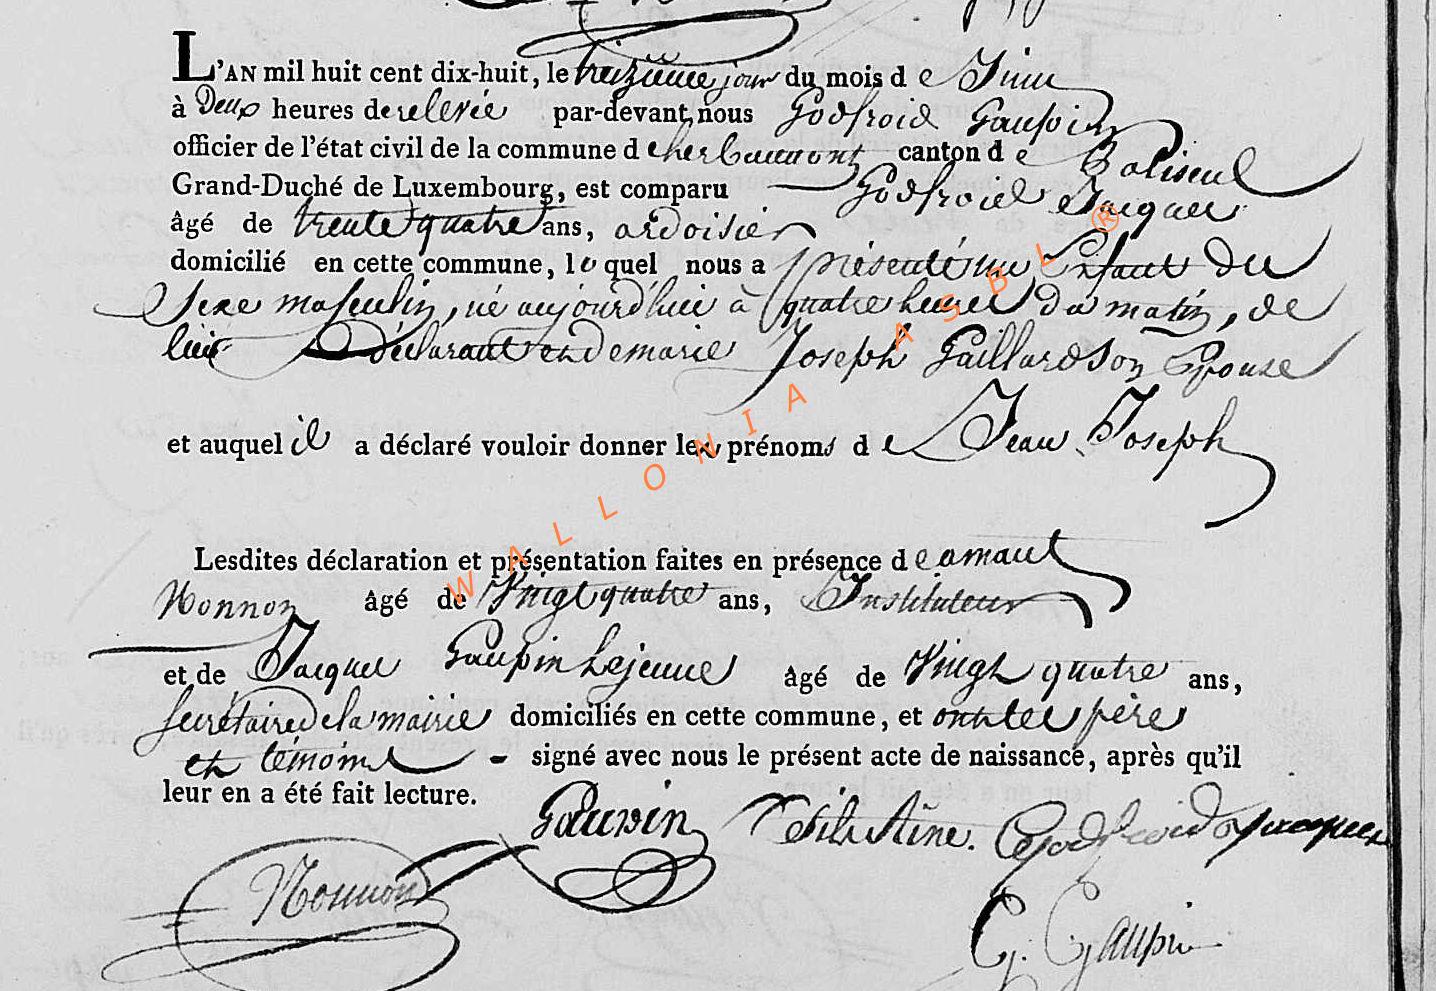 L'AN mil huit cent dix-huit, le treizieme jour du mois de Juin
à Deux heures de relevée par-devant nous Godfroid Gaupin
officier de l'état civil de la commune d'herbeumont canton de Paliseul
Grand-Duché de Luxembourg, est comparu Godfroid Jacques
âgé de trente quatre ans, ardoisier
domicilié en cette commune, lequel nous a présenté un Enfant du
Sexe masculin, né aujourd'hui à quatre heures du matin, de
lui Déclarant et de marie Joseph Gaillard son Epouse
et auquel il a déclaré vouloir donner les prénoms de Jean Joseph
Lesdites déclaration et présentation faites en présence de amant
Nonnon âgé de Vingt quatre ans, Instituteur
et de Jacques Gaupin Lejeune âgé de Vingt quatre ans,
secrétaire de la mairie domiciliés en cette commune, et ont les père
et témoins signé avec nous le présent acte de naissance, après qu'il
leur en a été fait lecture.
Godfroid Jacques
Nonnon
G. Gaupin
WALLONIA ASBL ®